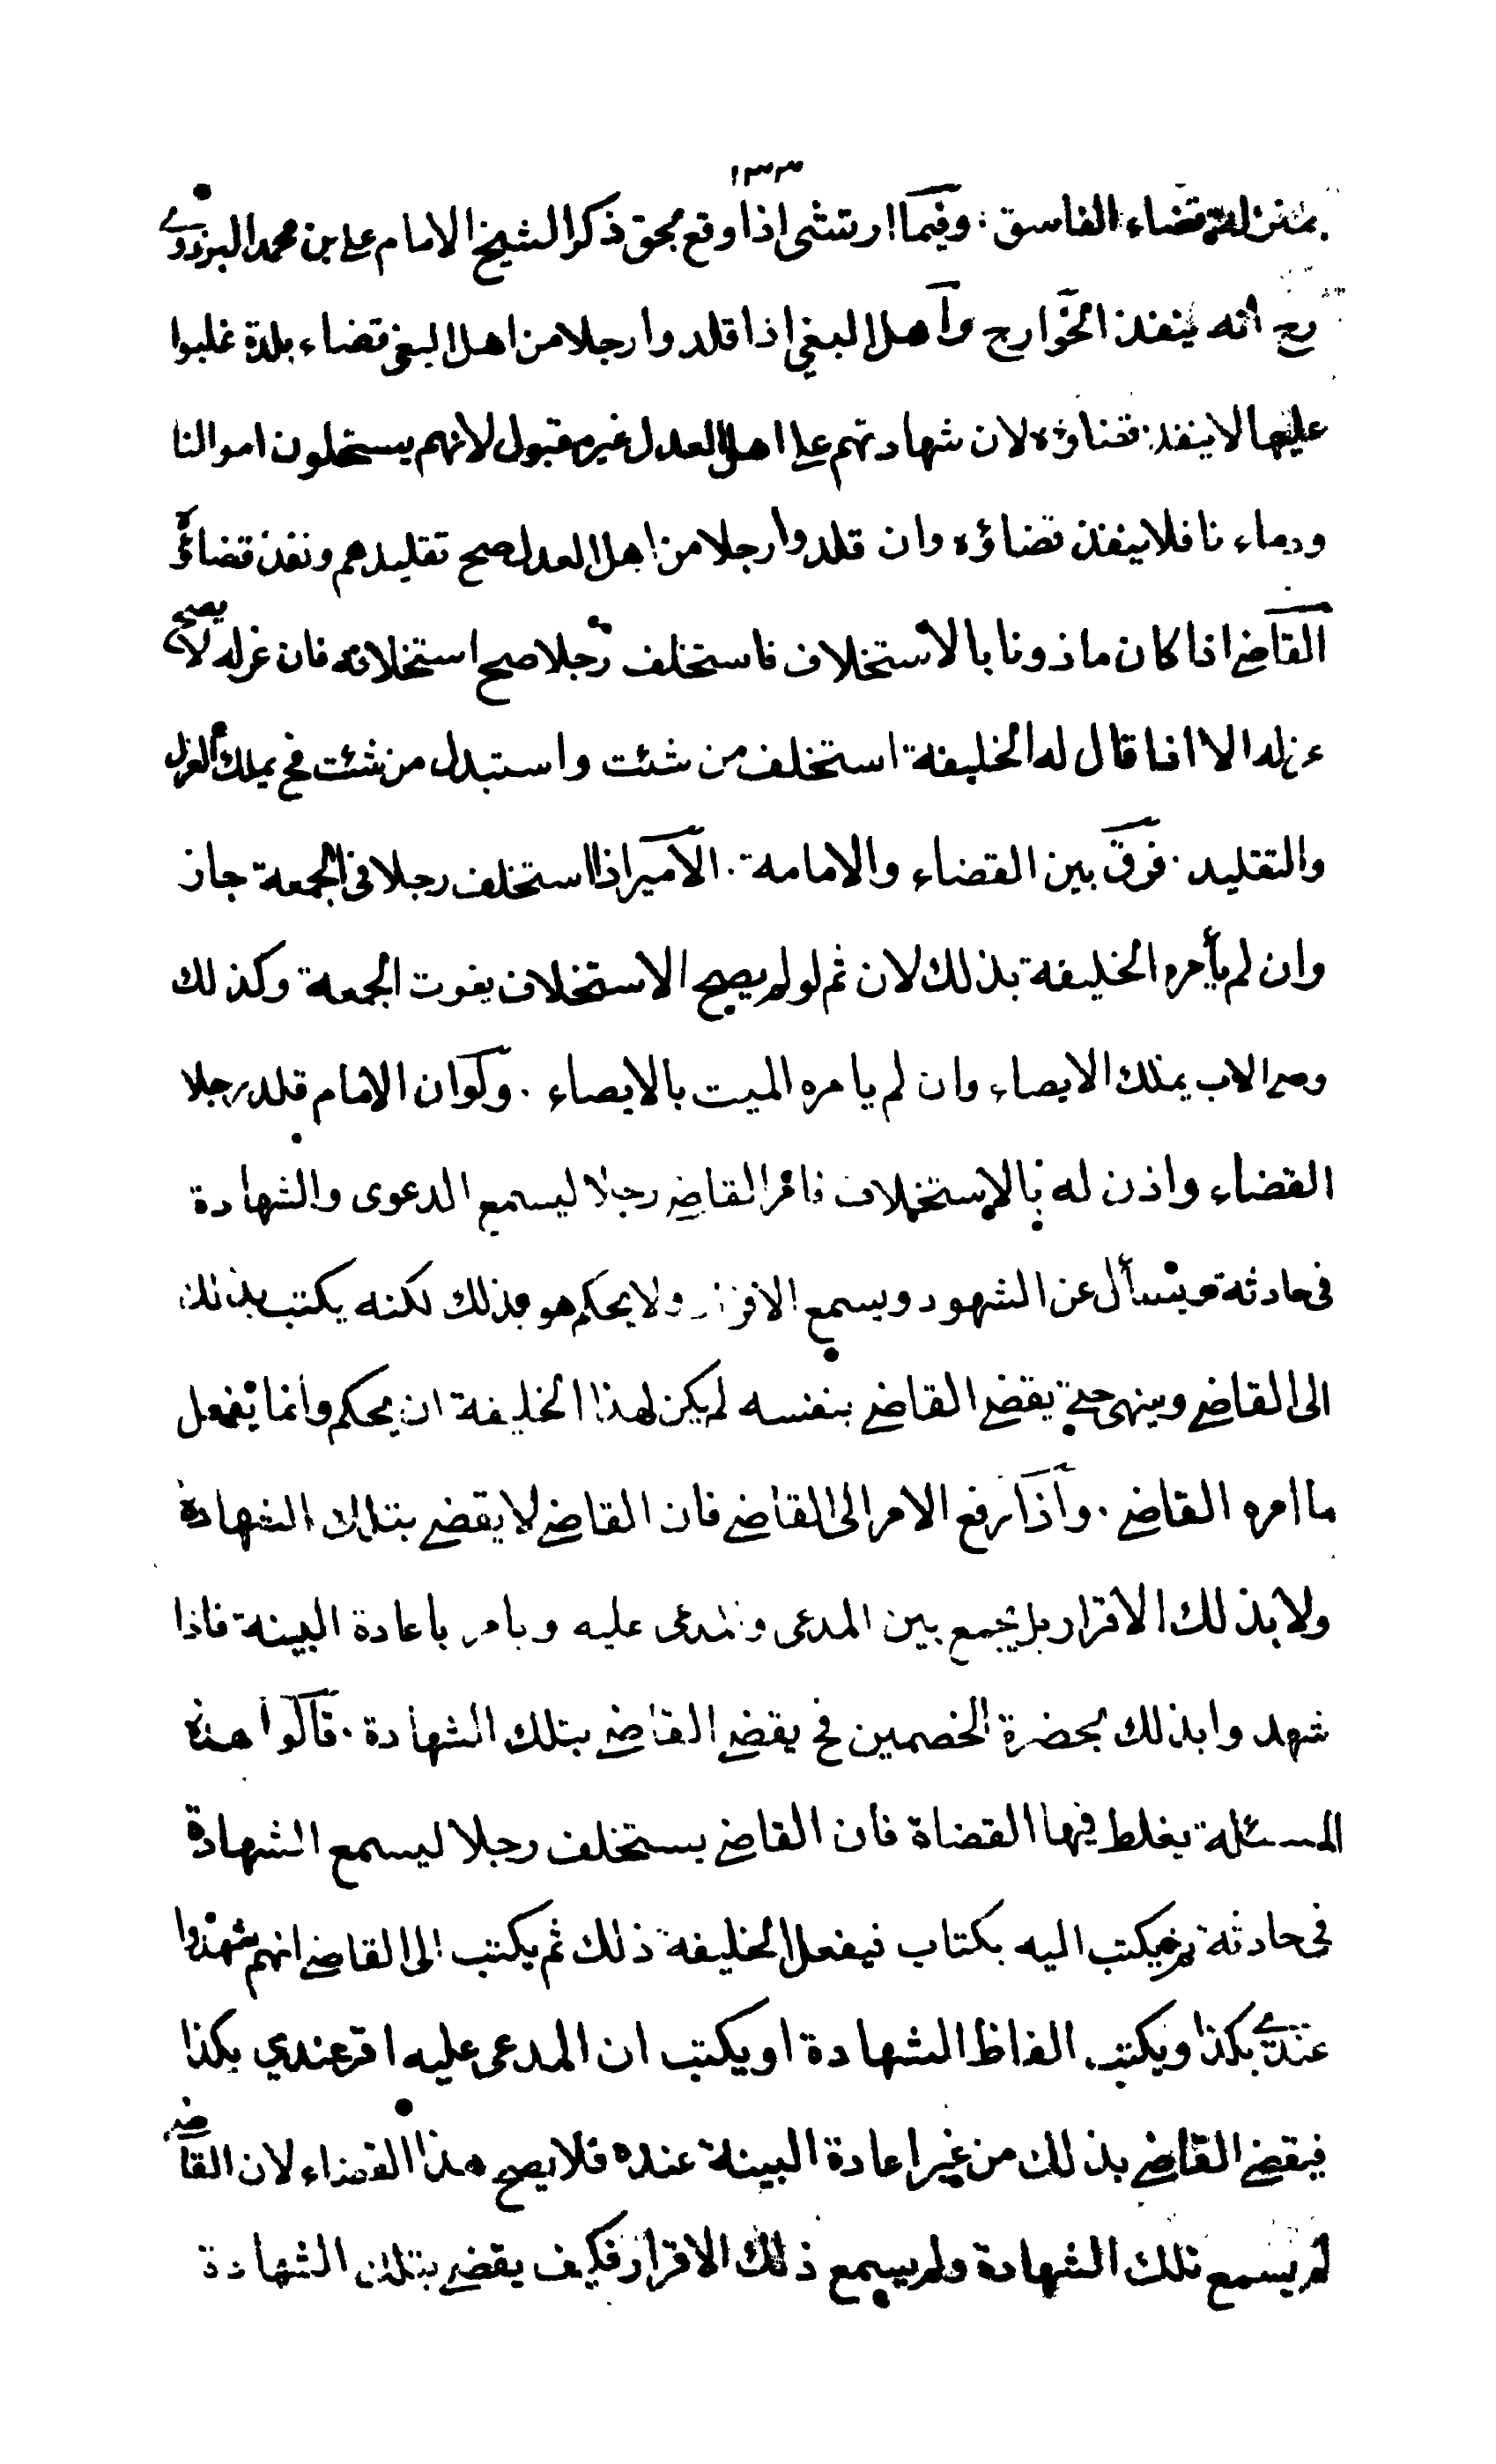 ١٣٣
بمنزلة قضاء الفاسق وفيما ارتشى اذا وقع بحق ذكر الشيخ الامام علي بن محمد البزدوي
رح انه ينفذ الخوارج واهل البغي اذا قلدوا رجلا من اهل البغي قضاء بلدة غلبوا
عليها لا ينفذ قضاؤه لان شهادتهم على اهل العدل غير مقبول لانهم يستحلون اموالنا
ودماء نا فلا ينفذ قضاؤه وان قلدوا رجلا من اهل العدل صح تقليدهم ونفذ قضاؤه
القاضي اذا كان ماذونا بالاستخلاف فاستخلف رجلا صح استخلافه فان عزله لا يصح
عزله الا اذا قال له الخليفة استخلف من شئت واستبدل من شئت فح يملك العزل
والتقليد . فرق بين القضاء والامامة . الامير اذا استخلف رجلا في الجمعة جاز
وان لم يأمره الخليفة بذلك لان ثم لو لم يصح الاستخلاف يفوت الجمعة وكذلك
وصي الاب يملك الايصاء وان لم يامره الميت بالايصاء . ولو ان الامام قلد رجلا
القضاء واذن له بالاستخلاف فامر القاضي رجلا ليسمع الدعوى والشهادة
في حادثة ويسأل عن الشهود ويسمع الاقرار ولا يحكم هو بذلك لكنه يكتب بذلك
الى القاضي وينهى حتى يقضي القاضي بنفسه لم يكن لهذا الخليفة ان يحكم وانما يفعل
ما امره القاضي . واذا رفع الامر الى القاضي فان القاضي لا يقضي بتلك الشهادة
ولا بذلك الاقرار بل يجمع بين المدعى والمدعى عليه ويامر باعادة البينة فاذا
شهدوا بذلك بحضرة الخصمين فح يقضي القاضي بتلك الشهادة . قالوا هذه
المسئلة يغلط فيها القضاة فان القاضي يستخلف رجلا ليسمع الشهادة
في حادثة ثم يكتب اليه بكتاب فيفعل الخليفة ذلك ثم يكتب الى القاضي انهم شهدوا
عندي بكذا ويكتب الفاظ الشهادة او يكتب ان المدعى عليه اقر عندي بكذا
فيقضي القاضي بذلك من غير اعادة البينة عنده فلا يصح هذا القضاء لان القاضي
لم يسمع تلك الشهادة ولم يسمع ذلك الاقرار فكيف يقضي بتلك الشهادة